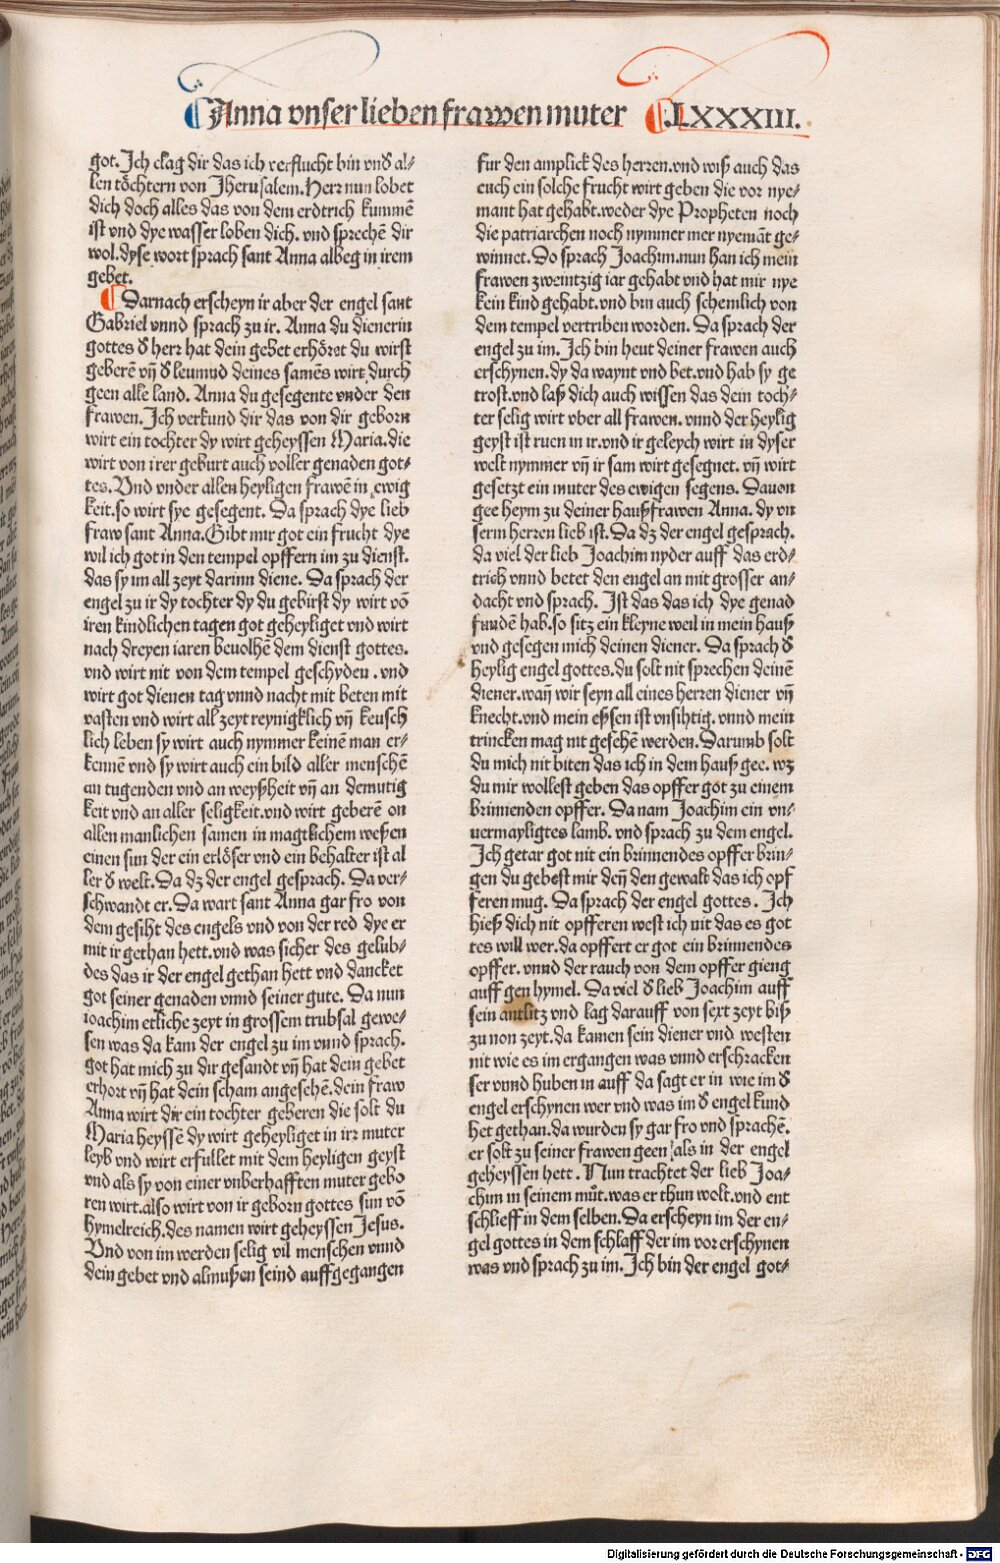 Anna vnser lieben frawen muter .LXXXIII.
got. Ich clag dir das ich verflucht bin vnd al⸗
len töchtern von Jherusalem. Herr nun lobet
dich doch alles das von dem erdtrich kummē
ist vnd dye wasser loben dich. vnd sprechē dir
wol. dyse wort sprach sant Anna albeg in irem
gebet.
Darnach erscheyn ir aber der engel sant
Gabriel vnnd sprach zu ir. Anna du dienerin
gottes d̕ herr hat dein gebet erhöret du wirst
geberē vñ d̕ leumud deines samēs wirt durch
geen alle land. Anna du gesegente vnder den
frawen. Ich verkund dir das von dir geborn
wirt ein tochter dy wirt geheyssen Maria. die
wirt von irer geburt auch voller genaden got⸗
tes. Vnd vnder allen heyligen frawē in ewig
keit. so wirt sye gesegent. Da sprach dye lieb
fraw sant Anna. Gibt mir got ein frucht dye
wil ich got in den tempel opffern im zu dienst.
das sy im all zeyt darinn diene. Da sprach der
engel zu ir dy tochter dy du gebirst dy wirt vō
iren kindlichen tagen got geheyliget vnd wirt
nach dreyen iaren beuolhē dem dienst gottes.
vnd wirt nit von dem tempel geschyden. vnd
wirt got dienen tag vnnd nacht mit beten mit
vasten vnd wirt all zeyt reynigklich vñ keusch
lich leben sy wirt auch nymmer keinē man er⸗
kennē vnd sy wirt auch ein bild aller menschē
an tugenden vnd an weyßheit vñ an demutig
keit vnd an aller seligkeit. vnd wirt geberē on
allen manlichen samen in magtlichem weßen
einen sun der ein erlöser vnd ein behalter ist al
ler d̕ welt. Da dz der engel gesprach. Da ver⸗
schwandt er. Da wart sant Anna gar fro von
dem gesiht des engels vnd von der red dye er
mit ir gethan hett. vnd was sicher des gelub⸗
des das ir der engel gethan hett vnd dancket
got seiner genaden vnnd seiner gute. Da nun
ioachim etliche zeyt in grossem trubsal gewe⸗
sen was da kam der engel zu im vnnd sprach.
got hat mich zu dir gesandt vñ hat dein gebet
erhort vñ hat dein scham angesehē. dein fraw
Anna wirt dir ein tochter geberen die solt du
Maria heyssē dy wirt geheyliget in irr muter
leyb vnd wirt erfullet mit dem heyligen geyst
vnd als sy von einer vnberhafften muter gebo
ren wirt. also wirt von ir geborn gottes sun vō
hymelreich. des namen wirt geheyssen Jesus.
Vnd von im werden selig vil menschen vnnd
dein gebet vnd almußen seind auffgegangen
fur den amplick des herren. vnd wiß auch das
euch ein solche frucht wirt geben die vor nye⸗
mant hat gehabt. weder dye Propheten noch
die patriarchen noch nymmer mer nyemāt ge⸗
winnet. Do sprach Joachim. nun han ich mein
frawen zweintzig iar gehabt vnd hat mir nye
kein kind gehabt. vnd bin auch schemlich von
dem tempel vertriben worden. Da sprach der
engel zu im. Ich bin heut deiner frawen auch
erschynen. dy da waynt vnd bet. vnd hab sy ge
trost. vnd laß dich auch wissen das dein toch⸗
ter selig wirt vber all frawen. vnnd der heylig
geyst ist ruen in ir. vnd ir geleych wirt in dyser
welt nymmer vñ ir sam wirt gesegnet. vñ wirt
gesetzt ein muter des ewigen segens. Dauon
gee heym zu deiner haußfrawen Anna. dy vn
serm herren lieb ist. Da dz der engel gesprach.
da viel der lieb Joachim nyder auff das erd⸗
trich vnnd betet den engel an mit grosser an⸗
dacht vnd sprach. Ist das das ich dye genad
fundē hab. so sitz ein kleyne weil in mein hauß
vnd gesegen mich deinen diener. Da sprach d̕
heylig engel gottes. du solt nit sprechen deinē
diener. wañ wir seyn all eines herren diener vñ
knecht. vnd mein eßsen ist vnsihtig. vnnd mein
trincken mag nit gesehē werden. Darumb solt
du mich nit biten das ich in dem hauß gee. wz
du mir wollest geben das opffer got zu einem
brinnenden opffer. Da nam Joachim ein vn⸗
uermayligtes lamb. vnd sprach zu dem engel.
Ich getar got nit ein brinnendes opffer brin⸗
gen du gebest mir deñ den gewalt das ich opf
feren mug. Da sprach der engel gottes. Ich
hieß dich nit opfferen west ich nit das es got
tes will wer. da opffert er got ein brinnendes
opffer. vnnd der rauch von dem opffer gieng
auff gen hymel. Da viel d̕ lieb Joachim auff
sein antlitz vnd lag darauff von sext zeyt biß
zu non zeyt. da kamen sein diener vnd westen
nit wie es im ergangen was vnnd erschracken
ser vnnd huben in auff da sagt er in wie im d̕
engel erschynen wer vnd was im d̕ engel kund
het gethan. da wurden sy gar fro vnd sprachē.
er solt zu seiner frawen geen als in der engel
geheyssen hett. Nun trachtet der lieb Joa⸗
chim in seinem můt. was er thun wolt. vnd ent
schlieff in dem selben. Da erscheyn im der en⸗
gel gottes in dem schlaff der im vor erschynen
was vnd sprach zu im. Ich bin der engel got⸗
Digitalisierung gefördert durch die Deutsche Forschungsgemeinschaft - DFG